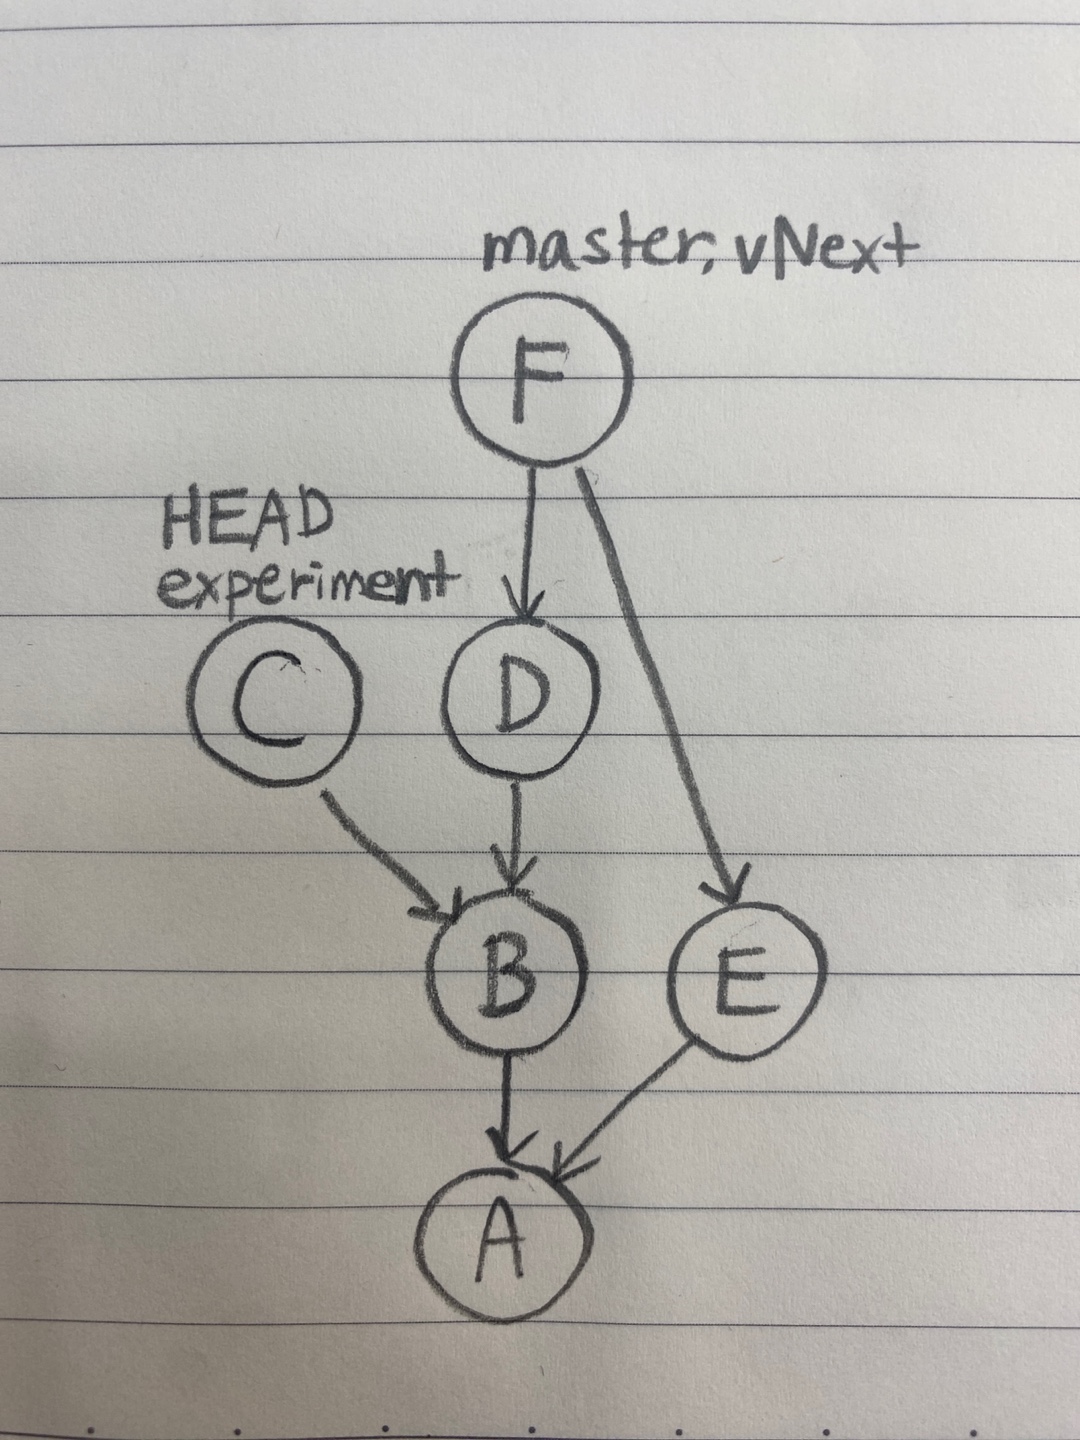 master, vNext
F
HEAD
experiment
C
D
B
E
A